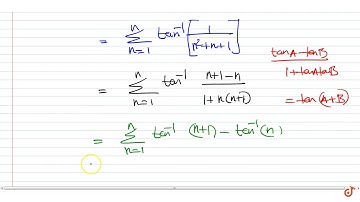 = n Σ n=1 tan⁻¹ [ 1 / n²+n+1 ]
tanA - tanB / 1+tanAtanB
= n Σ n=1 tan⁻¹ n+1-n / 1+n(n+1)
= tan(A±B)
= n Σ n=1 tan⁻¹ (n+1) - tan⁻¹(n)
=